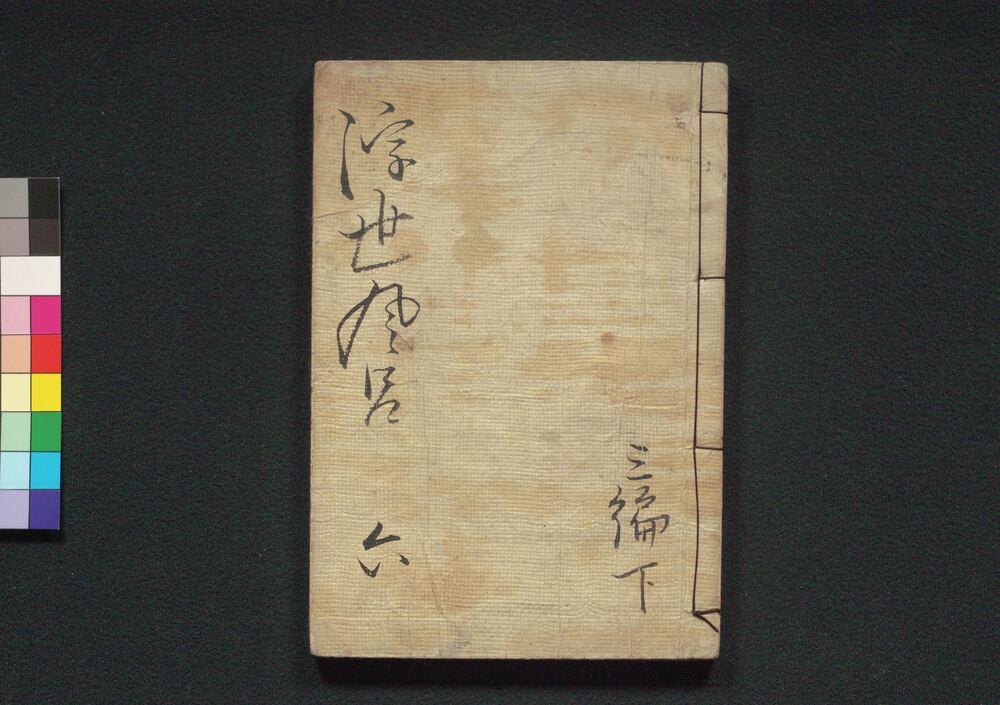 三編下
浮世風呂 六